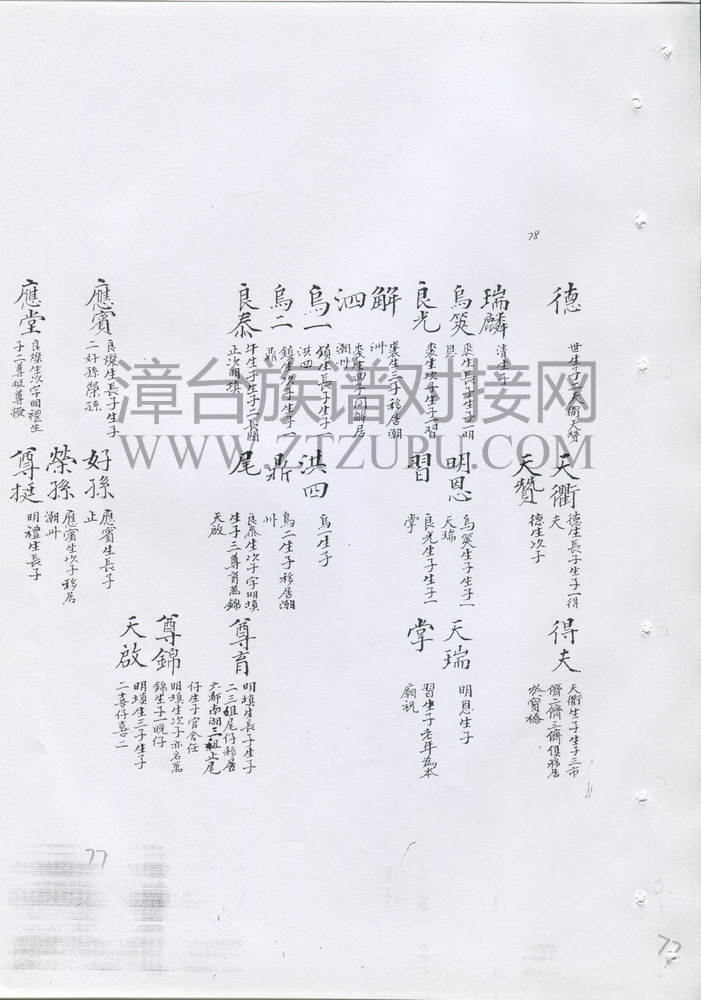 78
德
世生子二天衢天贊
瑞麟
清生子
烏筴
裘生長子生子一明
恩
良光
裘生次子生子一習
解
裘生三子移居潮
州
泗
裘生四子同解居
潮州
烏一
鎮生長子生子
洪四
烏二
鎮生次子生子一
鼎
良泰
生子二長
止次明填
應賓
良燦生長子生子
二好孫榮孫
應堂
良燦生次字明禮生
子二尊挺尊
天衢
德生長子生子一得
夫
天贊
德生次子
明恩
烏筴生子生子一
天瑞
習
良光生子生子一
掌
洪四
烏一生子
鼎
烏二生子移居潮
州
尾
良泰生次子字明填
生子三尊育萬錦
天啟
好孫
應賓生長子
止
榮孫
應賓生次子移居
潮州
尊挺
明禮生長子
得夫
天衢生子生子三市
儕二儕三儕俱移居
寶橋
天瑞
明恩生子
掌
習生子老年為本
廟祝
尊育
明填生長子生子
二三姐尾仔移居
六都南湖三姐止尾
仔生子官舍任
尊錦
明填生次子亦名萬
錦生子一晚仔
天啟
明填生三子生子
二喜仔喜二
漳台族谱对接网
WWW.ZTZUPU.COM
77
77